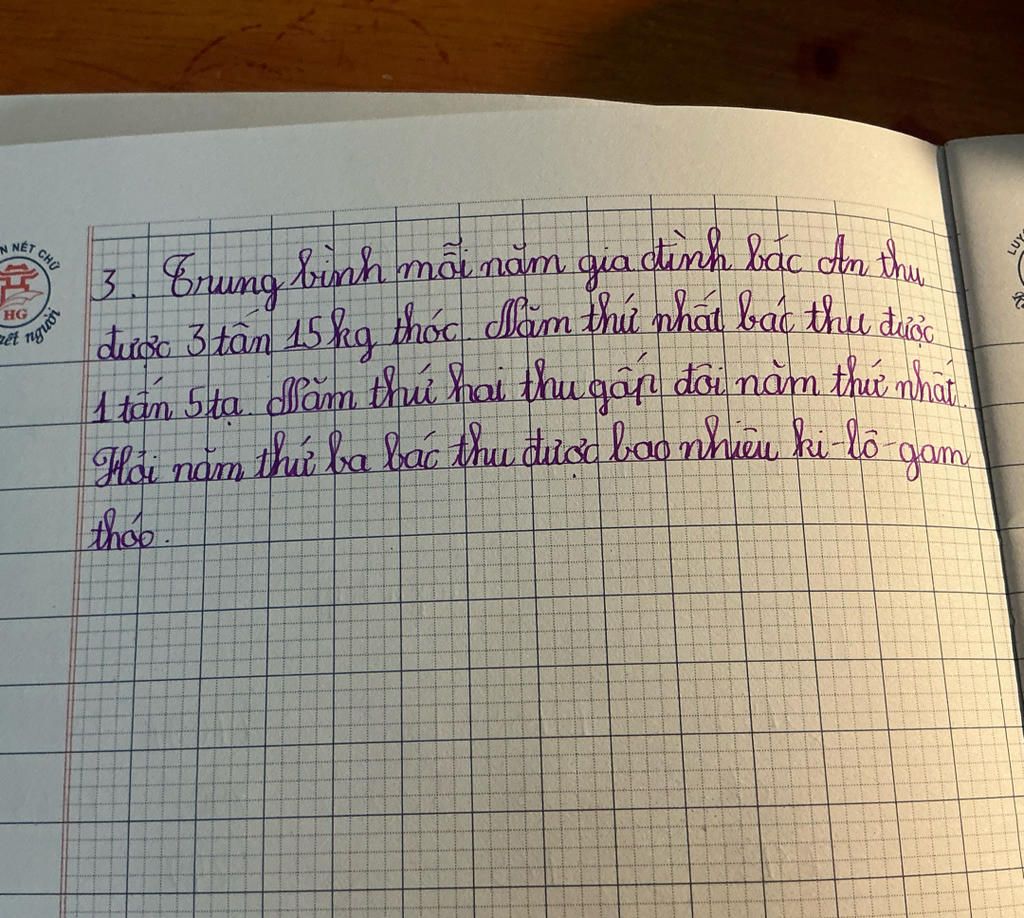 3. Trung bình mỗi năm gia đình bác An thu
được 3 tấn 15 kg thóc. Năm thứ nhất bác thu được
1 tấn 5 tạ. Năm thứ hai thu gấp đôi năm thứ nhất.
Hỏi năm thứ ba bác thu được bao nhiêu ki-lô-gam
thóc.
N NÉT CHỮ
HG
nết người
LUY